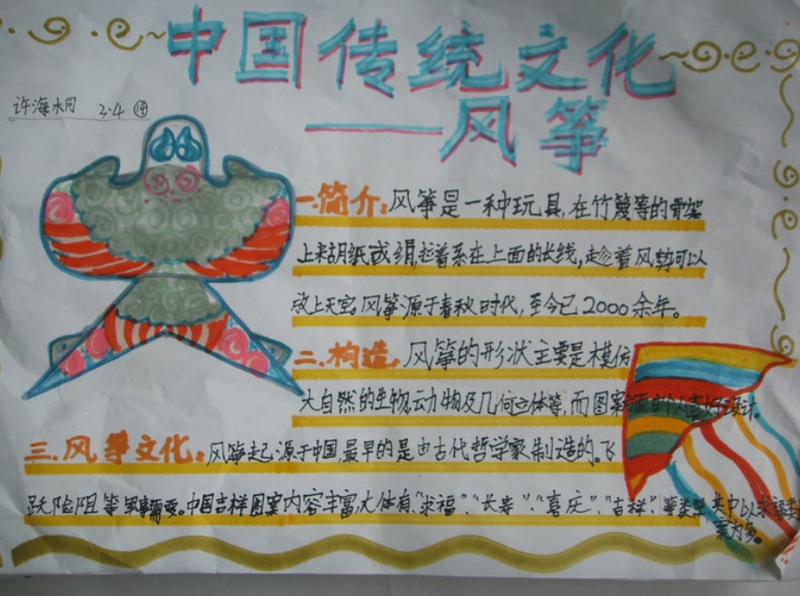 中国传统文化
——风筝
许海 3.4
一.简介:风筝是一种玩具,在竹篾等的骨架
上糊纸或绢,拉着系在上面的长线,趁着风势可以
放上天空。风筝源于春秋时代,至今已2000余年。
二.构造.风筝的形状主要是模仿
大自然的生物,动物及几何立体等,而图案由个人喜好设计。
三.风筝文化:风筝起源于中国,最早的是由古代哲学家制造的。飞
跃险阻等军事需要。中国吉祥图案内容丰富,大体有“求福”、“长寿”、“喜庆”、“吉祥”、等类型,其中以求福
案为多。